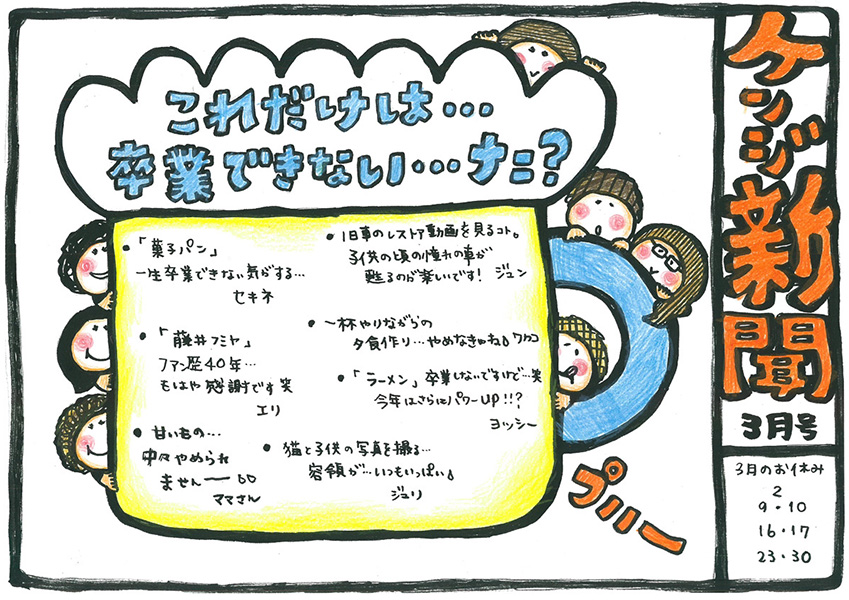 ケンジ新聞
3月号
3月のお休み
2
9・10
16・17
23・30
これだけは…
卒業できない…ナニ?
・「菓子パン」
一生卒業できない気がする…
セキネ
・「藤井フミヤ」
ファン歴40年…
もはや感謝です笑
エリ
・甘いもの…
中々やめられ
ませんー
ママさん
・旧車のレストア動画を見るコト。
子供の頃の憧れの車が
甦るのが楽しいです! ジュン
・一杯やりながらの
夕食作り…やめなきゃね ワカコ
・「ラーメン」卒業しないですけど…笑
今年はさらにパワーUP!!?
ヨッシー
・猫と子供の写真を撮る…
容領が…いつもいっぱい。
ジュリ
プハー